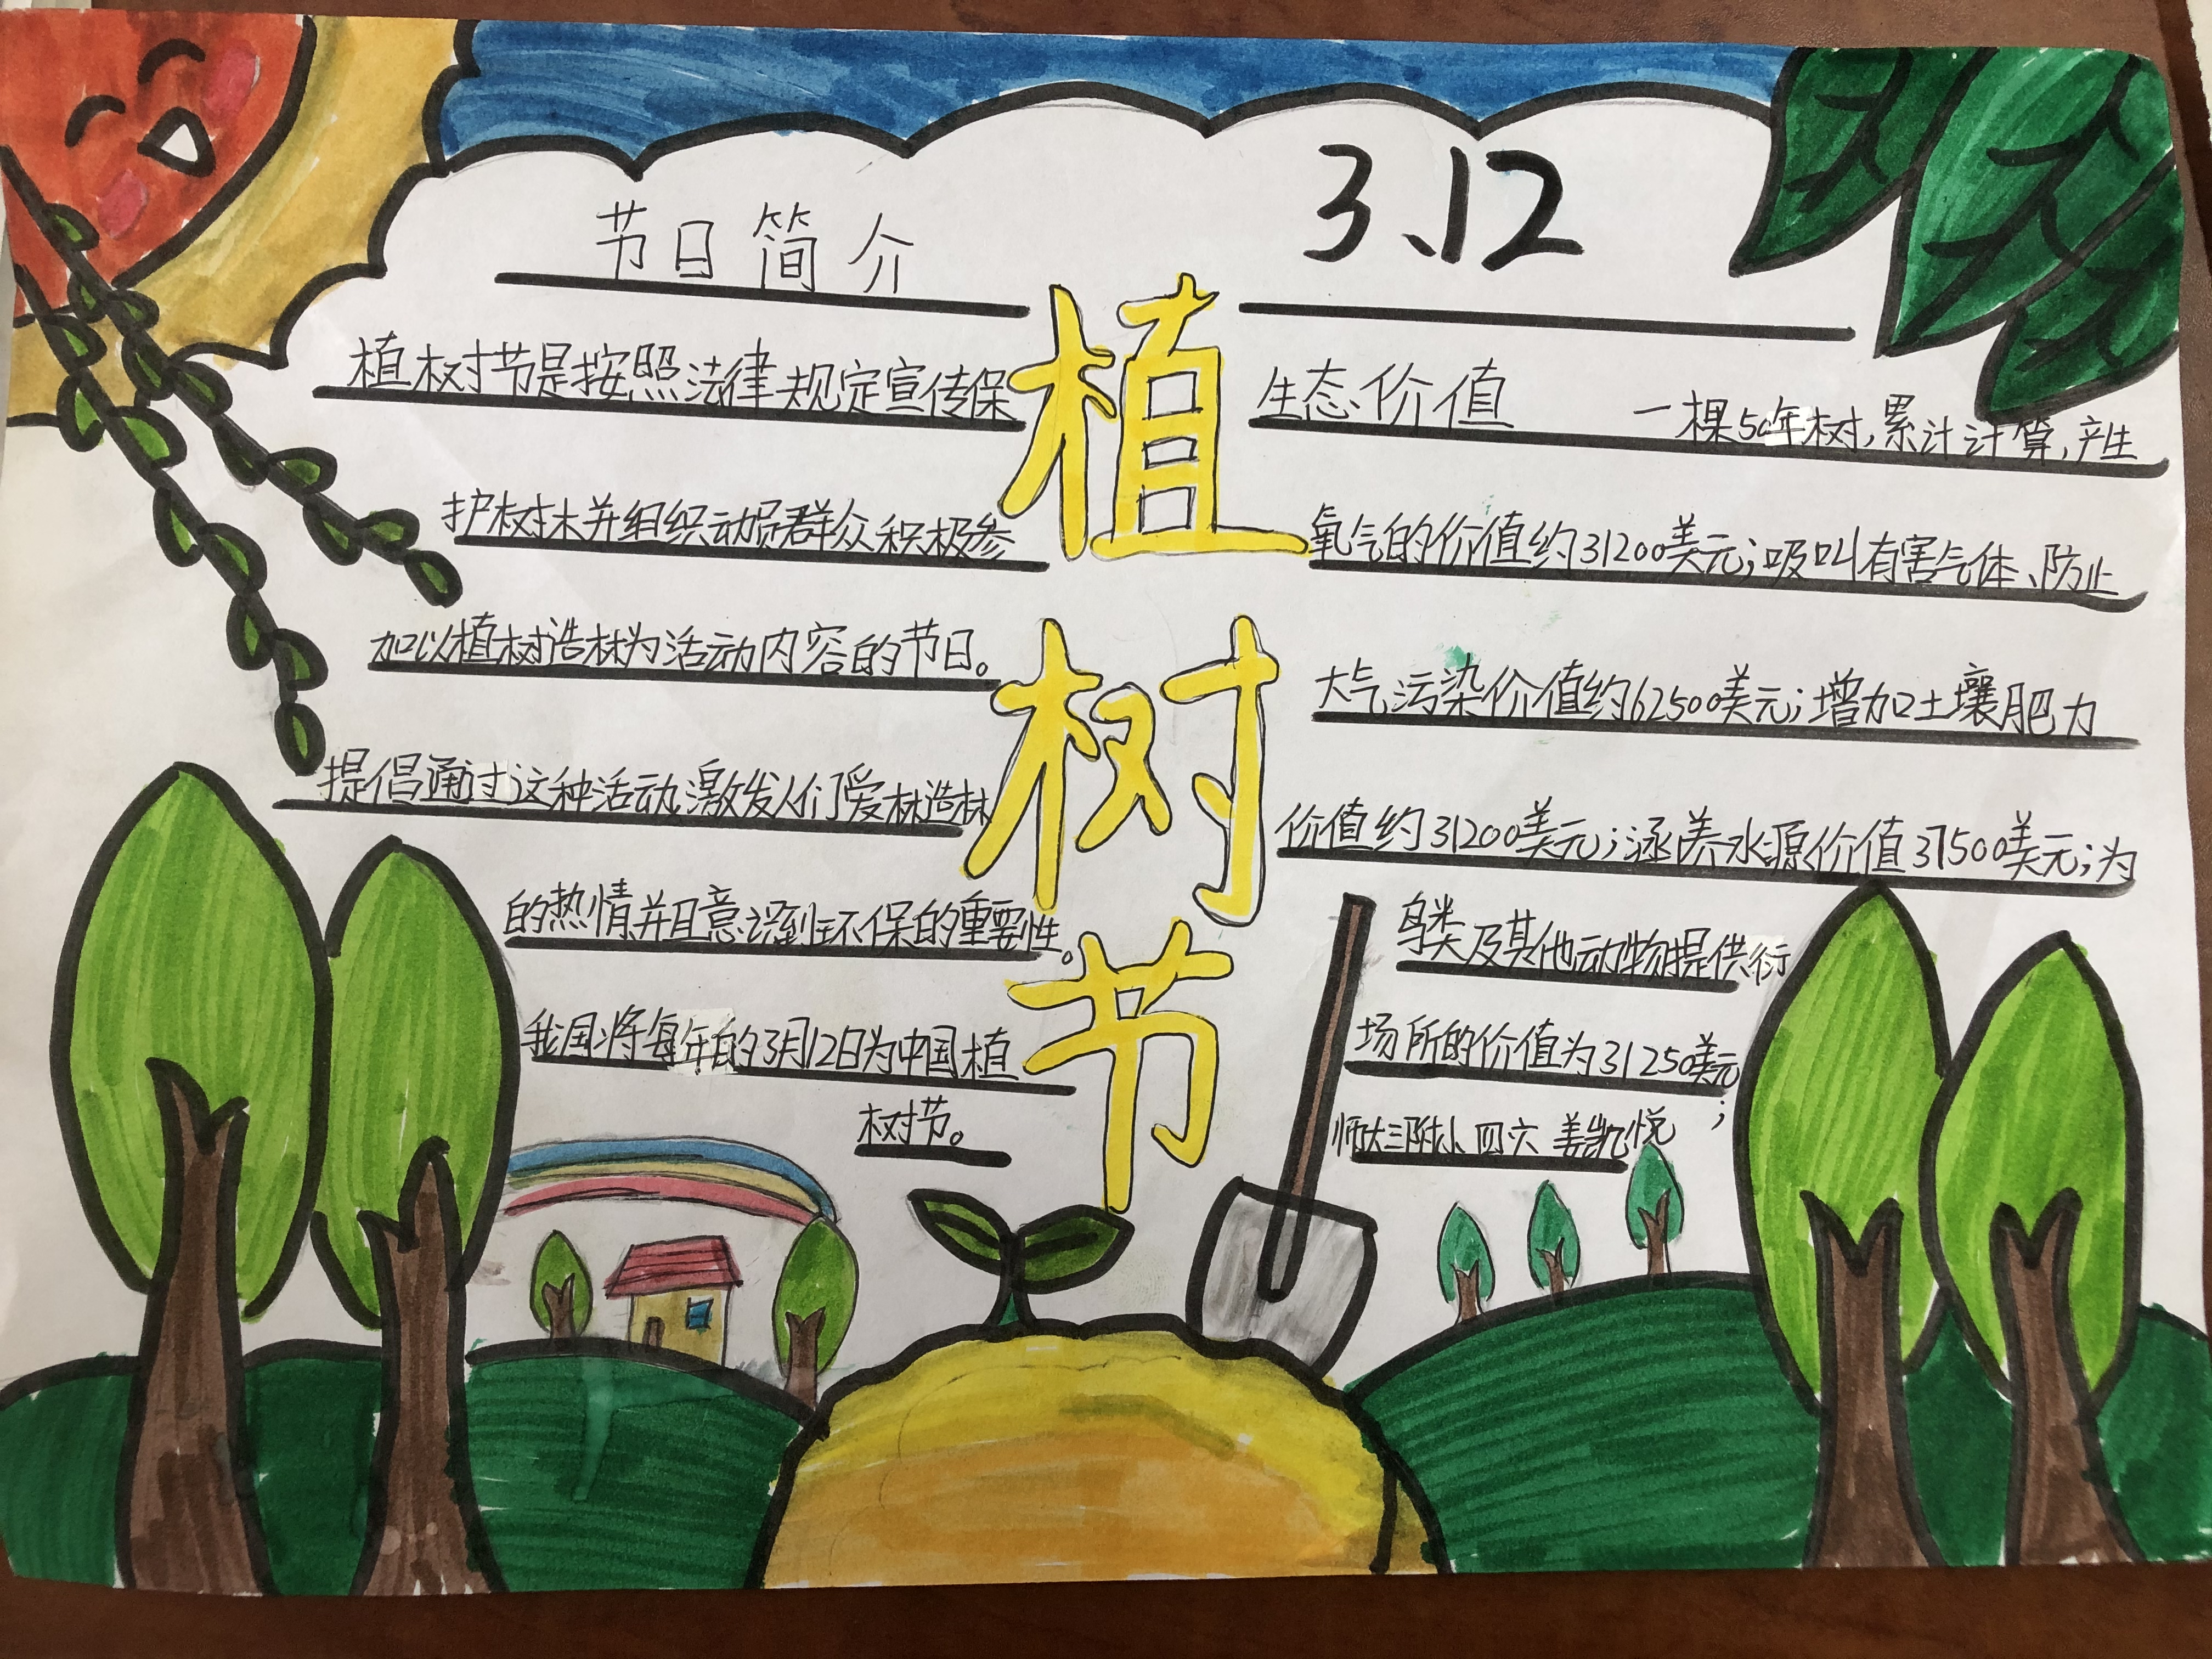 节日简介
植树节是按照法律规定宣传保
护树木并组织动员群众积极参
加以植树造林为活动内容的节日。
提倡通过这种活动激发人们爱林造林
的热情并且意识到环保的重要性。
我国将每年的3月12日为中国植
树节。
植
树
节
3.12
生态价值
一棵50年树,累计计算,产生
氧气的价值约31200美元;吸收有害气体、防止
大气污染价值约62500美元;增加土壤肥力
价值约31200美元;涵养水源价值37500美元;为
鸟类及其他动物提供衍
场所的价值为31250美元;
师大三附小 四六 姜凯悦